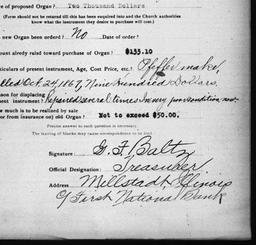 e of proposed Organ? Two Thousand Dollars
(Form should be returned till this has been required into and the Church authorities
know what the instrument they desire to purchase will cost)
new Organ been ordered? No Date of order?
ount already raised toward purchase of Organ? $135.10
ticulars of present instrument, Age, Cost Price, etc. Pfeffer make,
lled Oct. 24, 1867, Nine Hundred Dollars,
ason for displacing
present instrument? Repaired several times in very poor condition now
w much is to be realized by sale
or from insurance) on old Organ? Not to exceed $50.00.
Precise answer to each question is necessary.
The leaving of blanks may cause correspondence to no end.
Signature G. F. Baltz
Official Designation: Treasurer
Address Millstadt, Illinois
c/o First National Bank